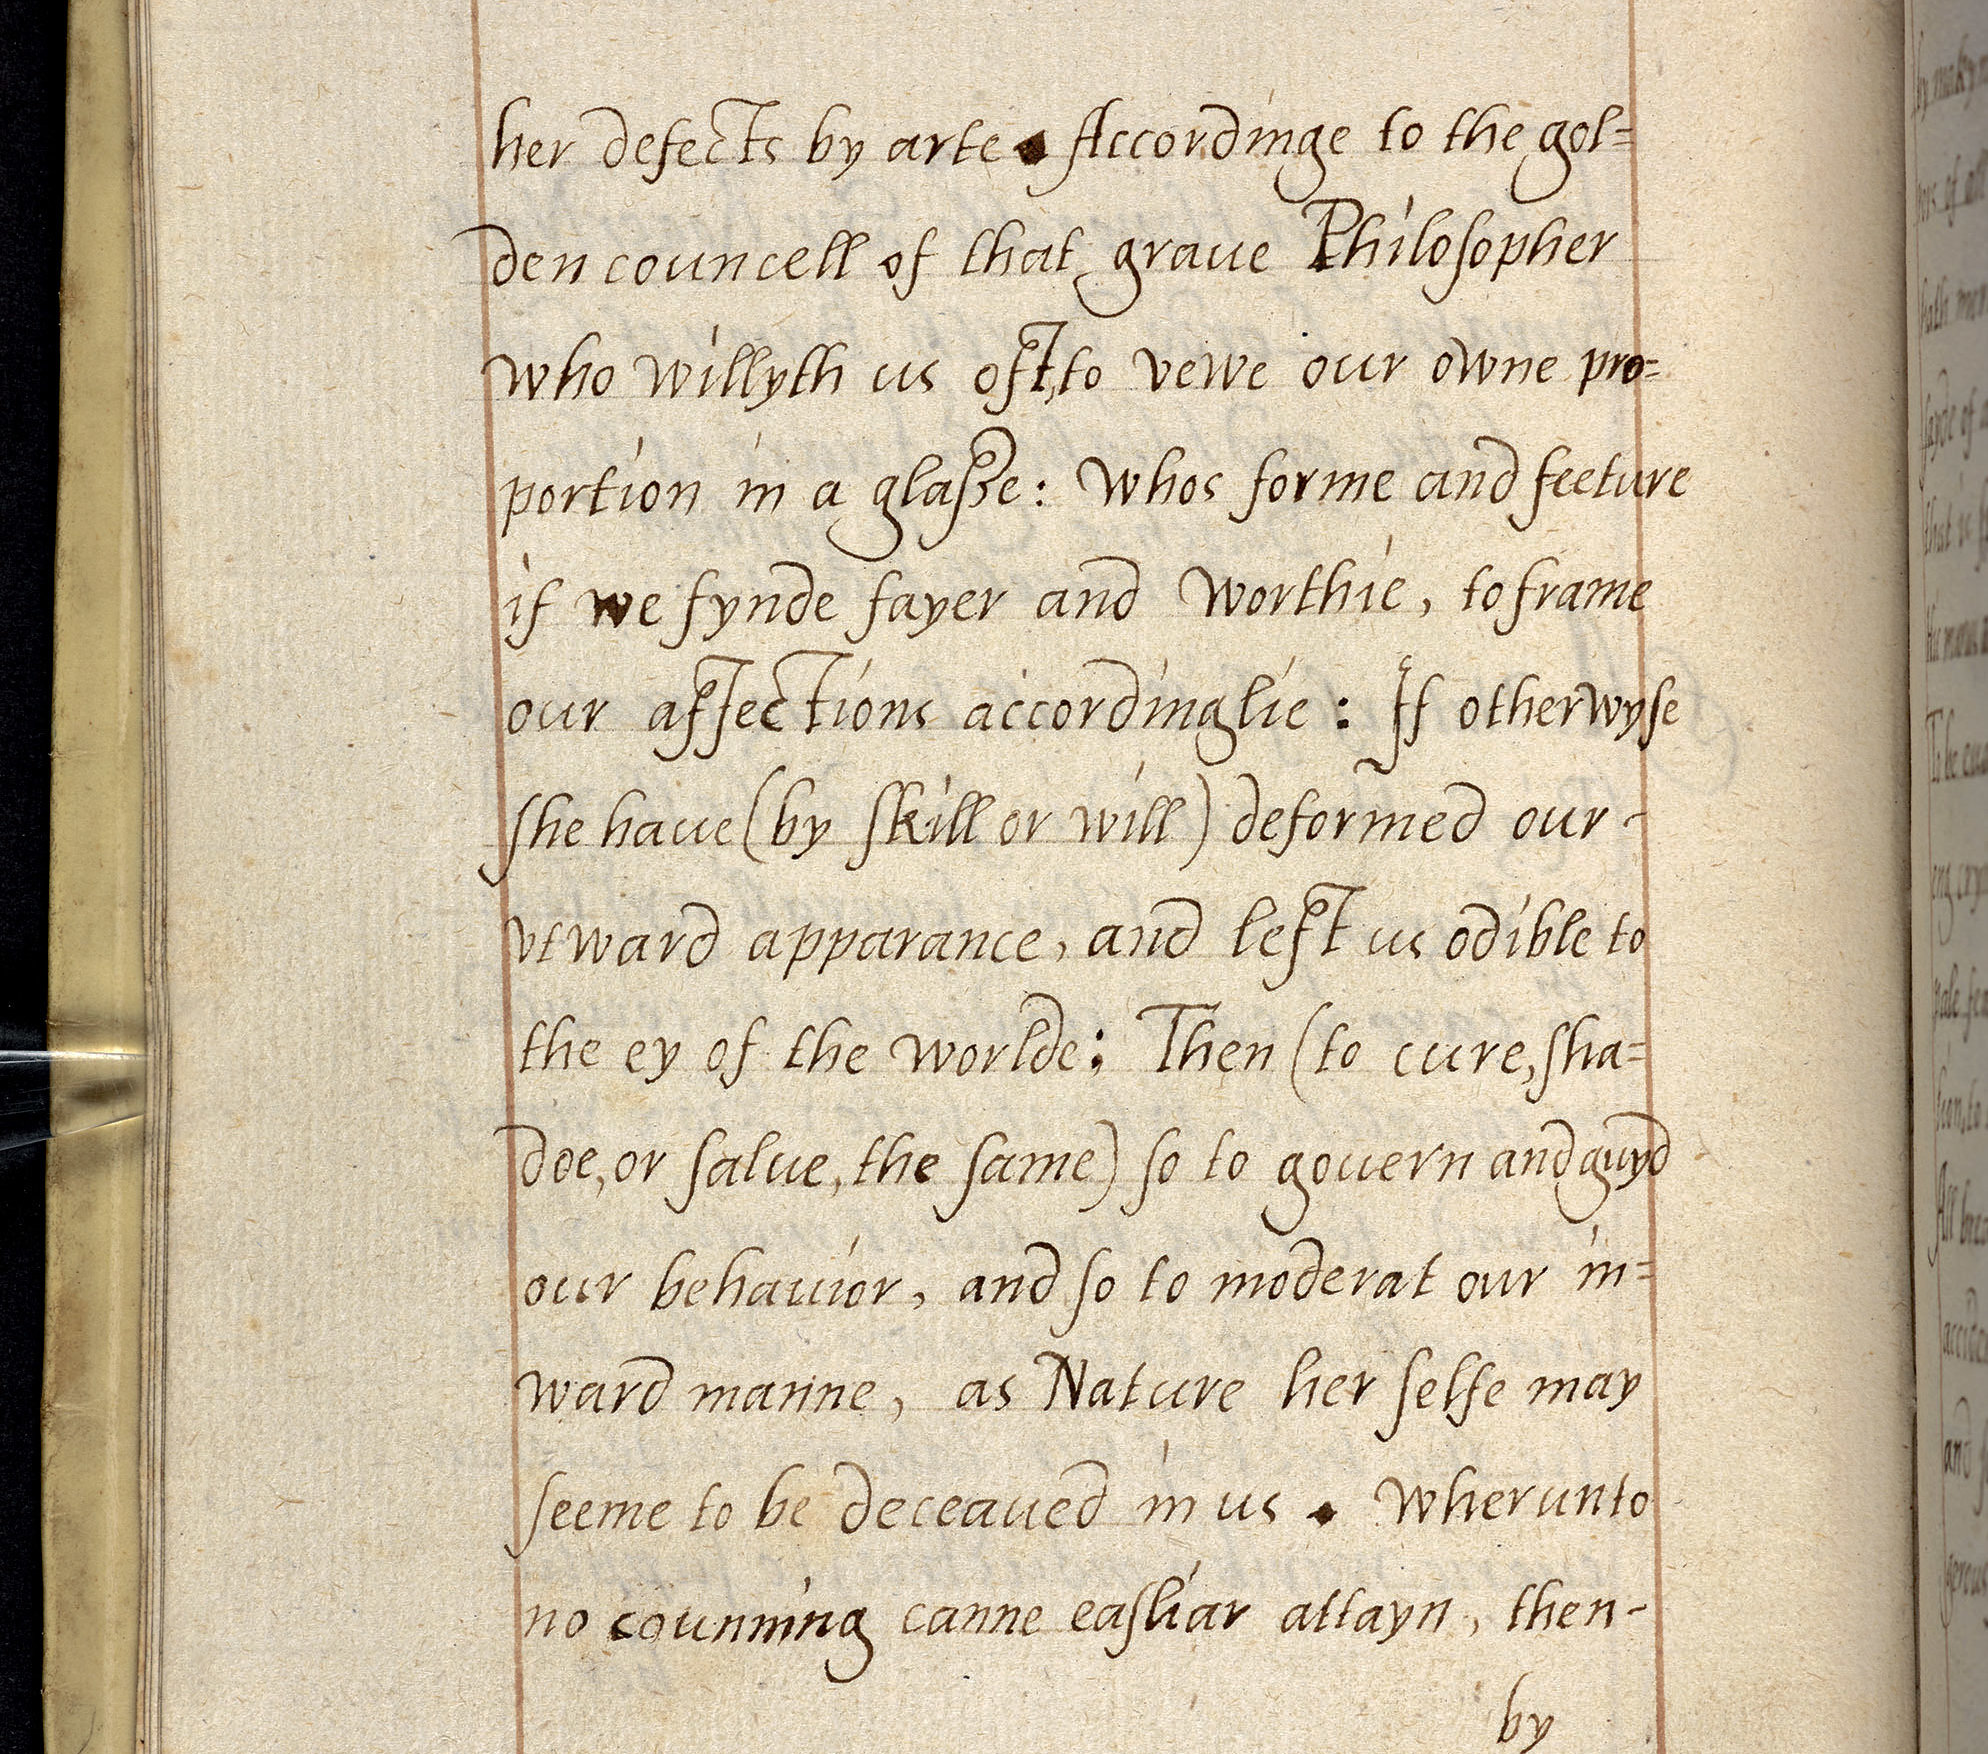 her defects by arte. Accordinge to the gol=
den councell of that graue Philosopher
who willyth us oft, to vewe our owne pro=
portion in a glasse: Whos forme and feeture
if we fynde fayer and worthie, to frame
our affections accordinglie: If otherwyse
she haue (by skill or will) deformed our-
vtward apparance, and left us odible to
the ey of the worlde: Then (to cure, sha=
doe, or salue, the same) so to gouern and guyd
our behauior, and so to moderat our in=
ward manne, as Nature her selfe may
seeme to be deceaued in us. Wherunto
no counning canne easliar attayn, then-
by